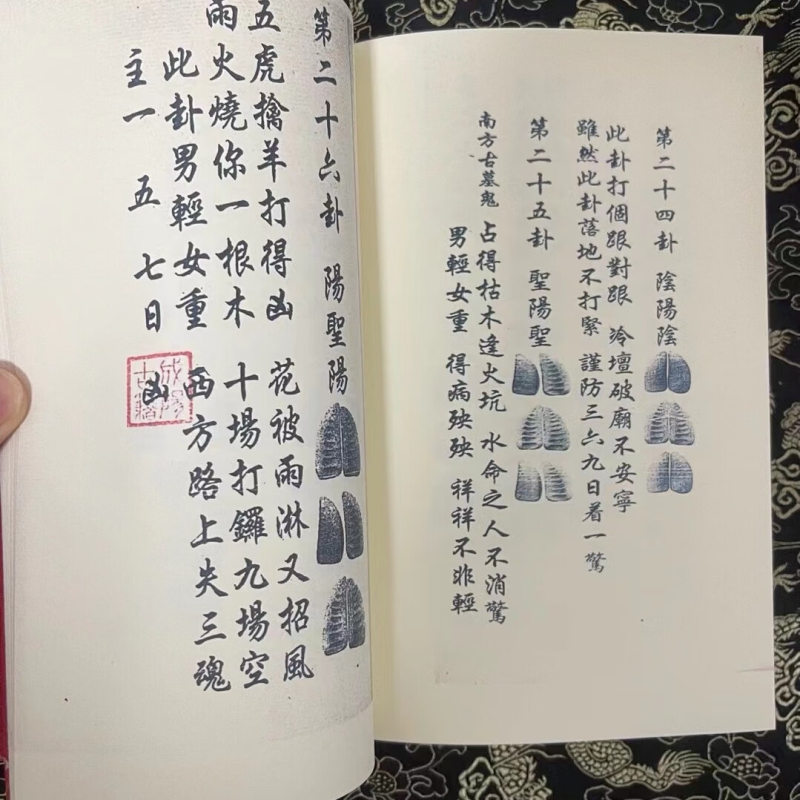 第二十四卦 陰陽陰
此卦打個跟對跟 冷壇破廟不安寧
雖然此卦落地不打緊 謹防三六九日着一驚
第二十五卦 聖陽聖
南方古墓鬼 占得枯木逢火坑 水命之人不消驚
男輕女重 得病殃殃 祥祥不非輕
第二十六卦 陽聖陽
五虎擒羊打得凶 花被雨淋又招風
雨火燒你一根木 十場打鑼九場空
此卦男輕女重 西方路上失三魂
主一 五 七日 凶